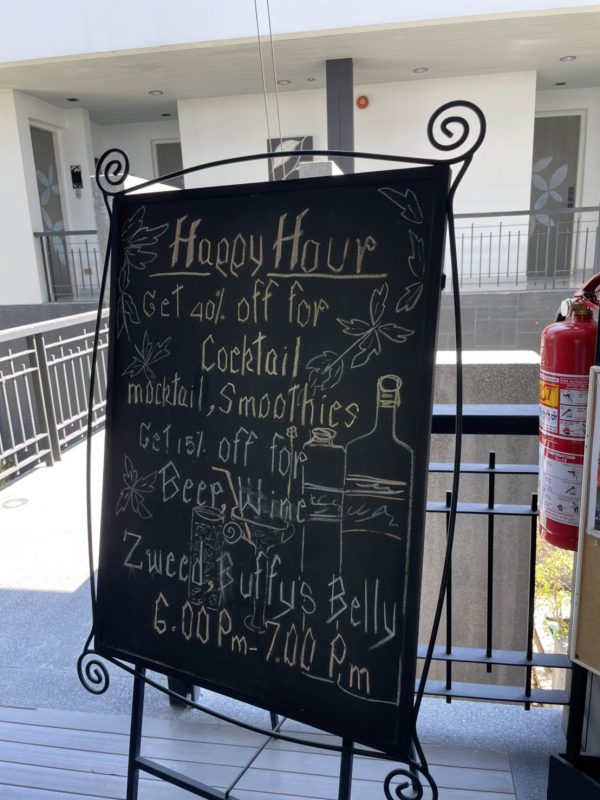 Happy Hour
Get 40% off for
Cocktail
mocktail, Smoothies
Get 15% off for
Beer, Wine
Zweed, Buffy's Belly
6.00 Pm - 7.00 P.m